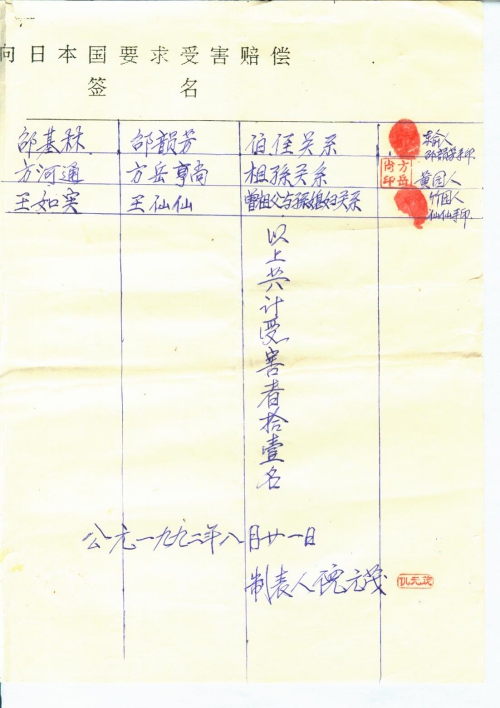 向日本国要求受害赔偿
签 名
邵基秝 邵韻芳 伯侄关系
邵韻芳手印
方河通 方岳亨尚 祖孫关系 方岳尚印 黄国人
王如实 王仙仙 曾祖父与孫媳妇关系 竹田人
仙仙手印
以上共计受害者拾壹名
公元一九九二年八月廿一日
制表人 元茂